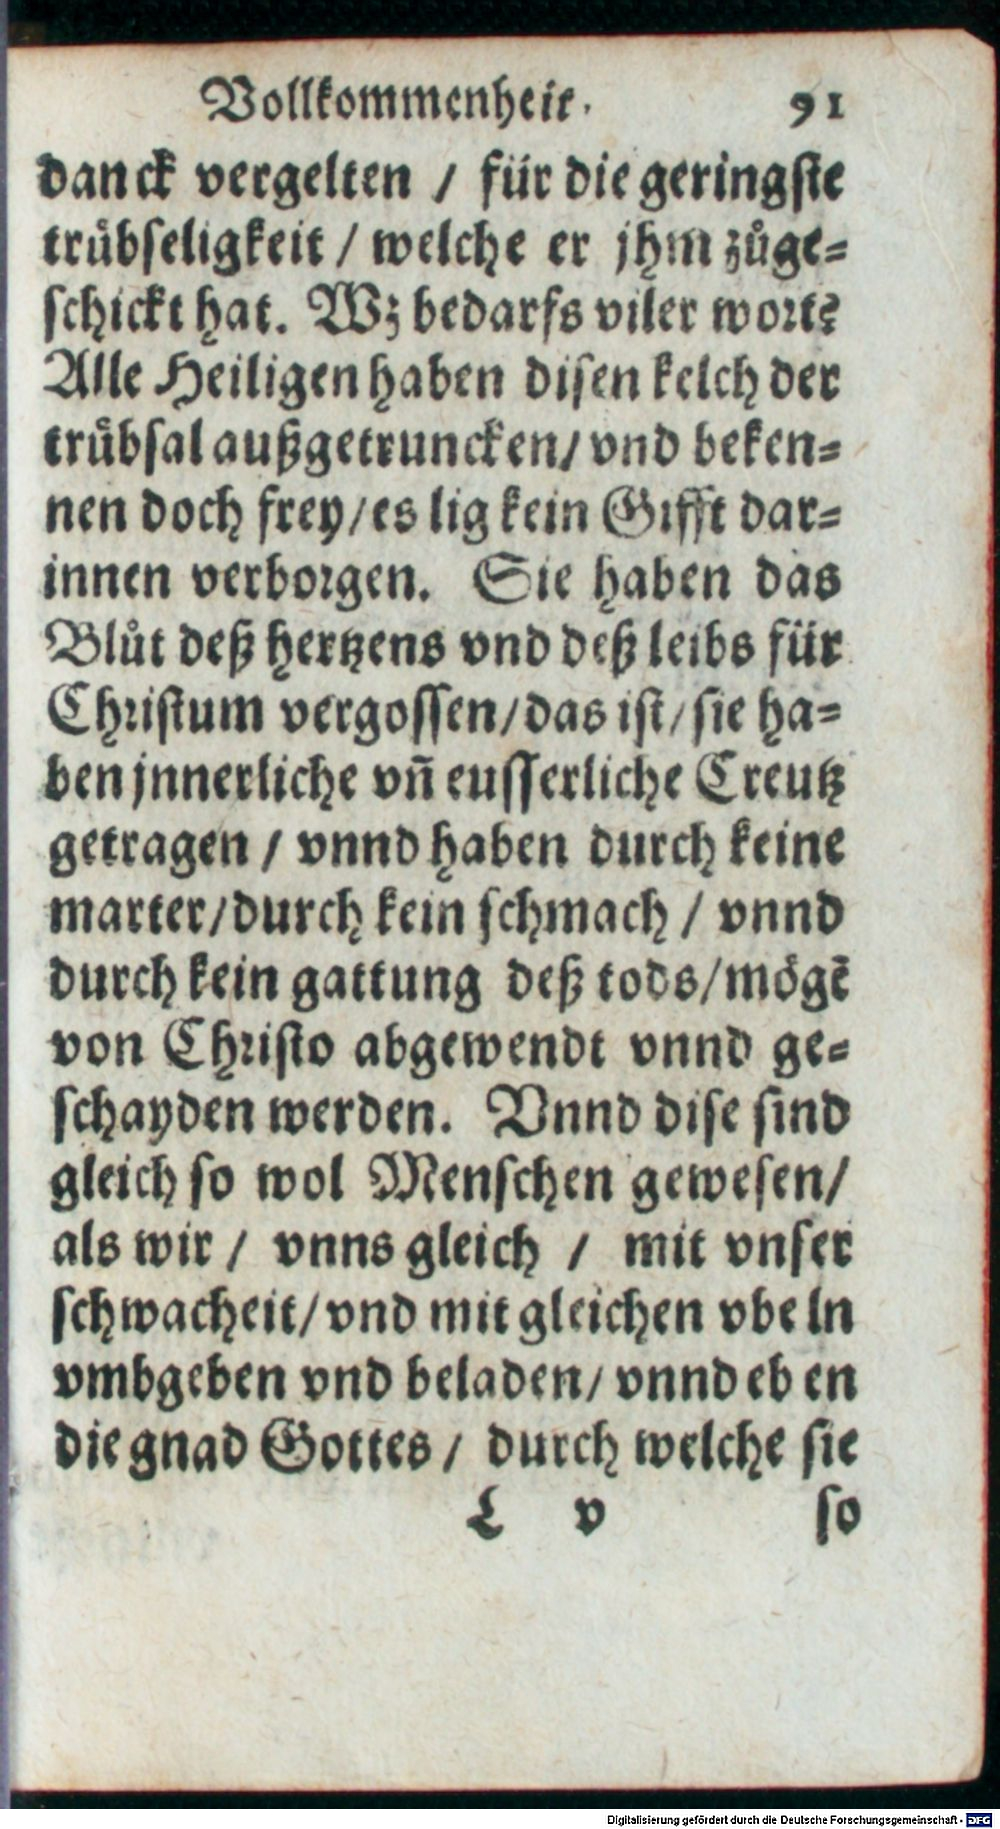 Vollkommenheit. 91
danck vergelten / für die geringste
truͤbseligkeit / welche er jhm zuͦge=
schickt hat. Wz bedarfs viler wort?
Alle Heiligen haben disen kelch der
truͤbsal außgetruncken / vnd beken=
nen doch frey / es lig kein Gifft dar=
innen verborgen. Sie haben das
Bluͦt deß hertzens vnd deß leibs für
Christum vergossen / das ist / sie ha=
ben jnnerliche vñ eusserliche Creutz
getragen / vnnd haben durch keine
marter / durch kein schmach / vnnd
durch kein gattung deß tods / mögẽ
von Christo abgewendt vnnd ge=
schayden werden. Vnnd dise sind
gleich so wol Menschen gewesen /
als wir / vnns gleich / mit vnser
schwacheit / vnd mit gleichen vbeln
vmbgeben vnd beladen / vnnd eben
die gnad Gottes / durch welche sie
L v so
Digitalisierung gefördert durch die Deutsche Forschungsgemeinschaft - DFG